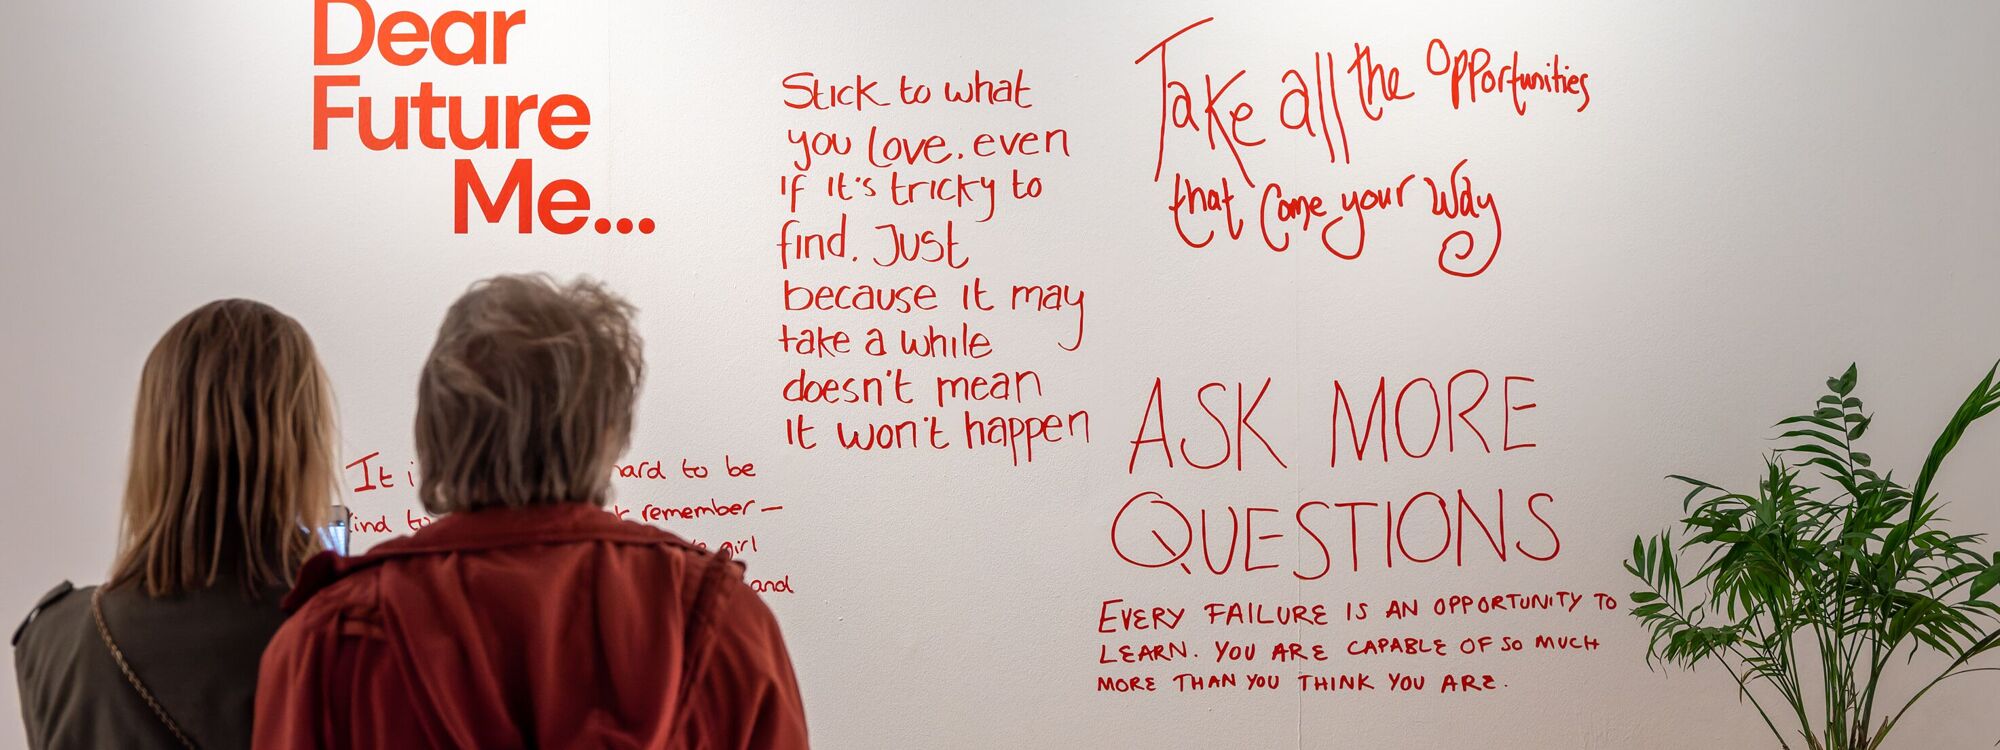 Dear
Future
Me...
Stick to what
you love. even
if it's tricky to
find. Just
because it may
take a while
doesn't mean
it won't happen
Take all the opportunities
that come your way
It
hard to be
remember—
girl
and
ASK MORE
QUESTIONS
EVERY FAILURE IS AN OPPORTUNITY TO
LEARN. YOU ARE CAPABLE OF SO MUCH
MORE THAN YOU THINK YOU ARE.